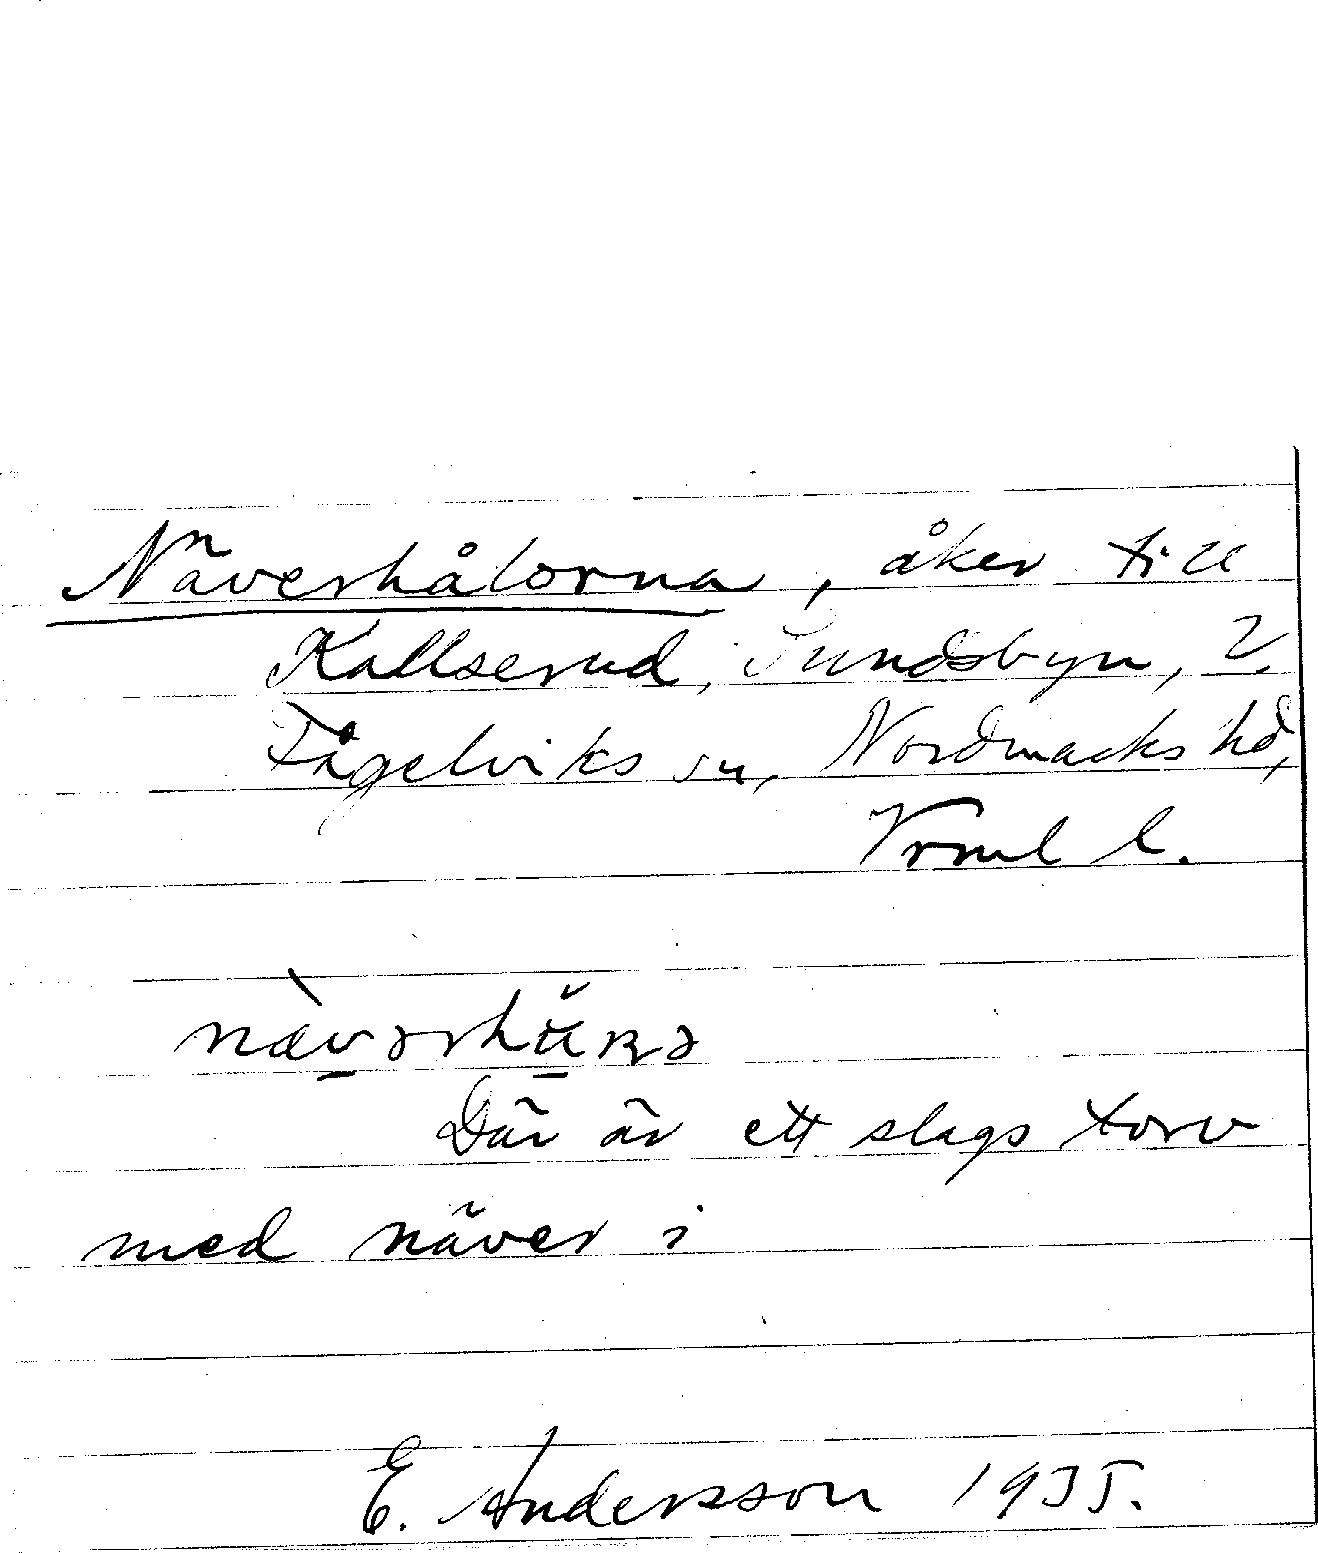 Näverhålorna, åker till
Kallserud, Sundsbyn, V.
Fågelviks sn, Nordmarks hd,
Vrml l.
Där är ett slags torv
med näver i
E. Andersson 1935.